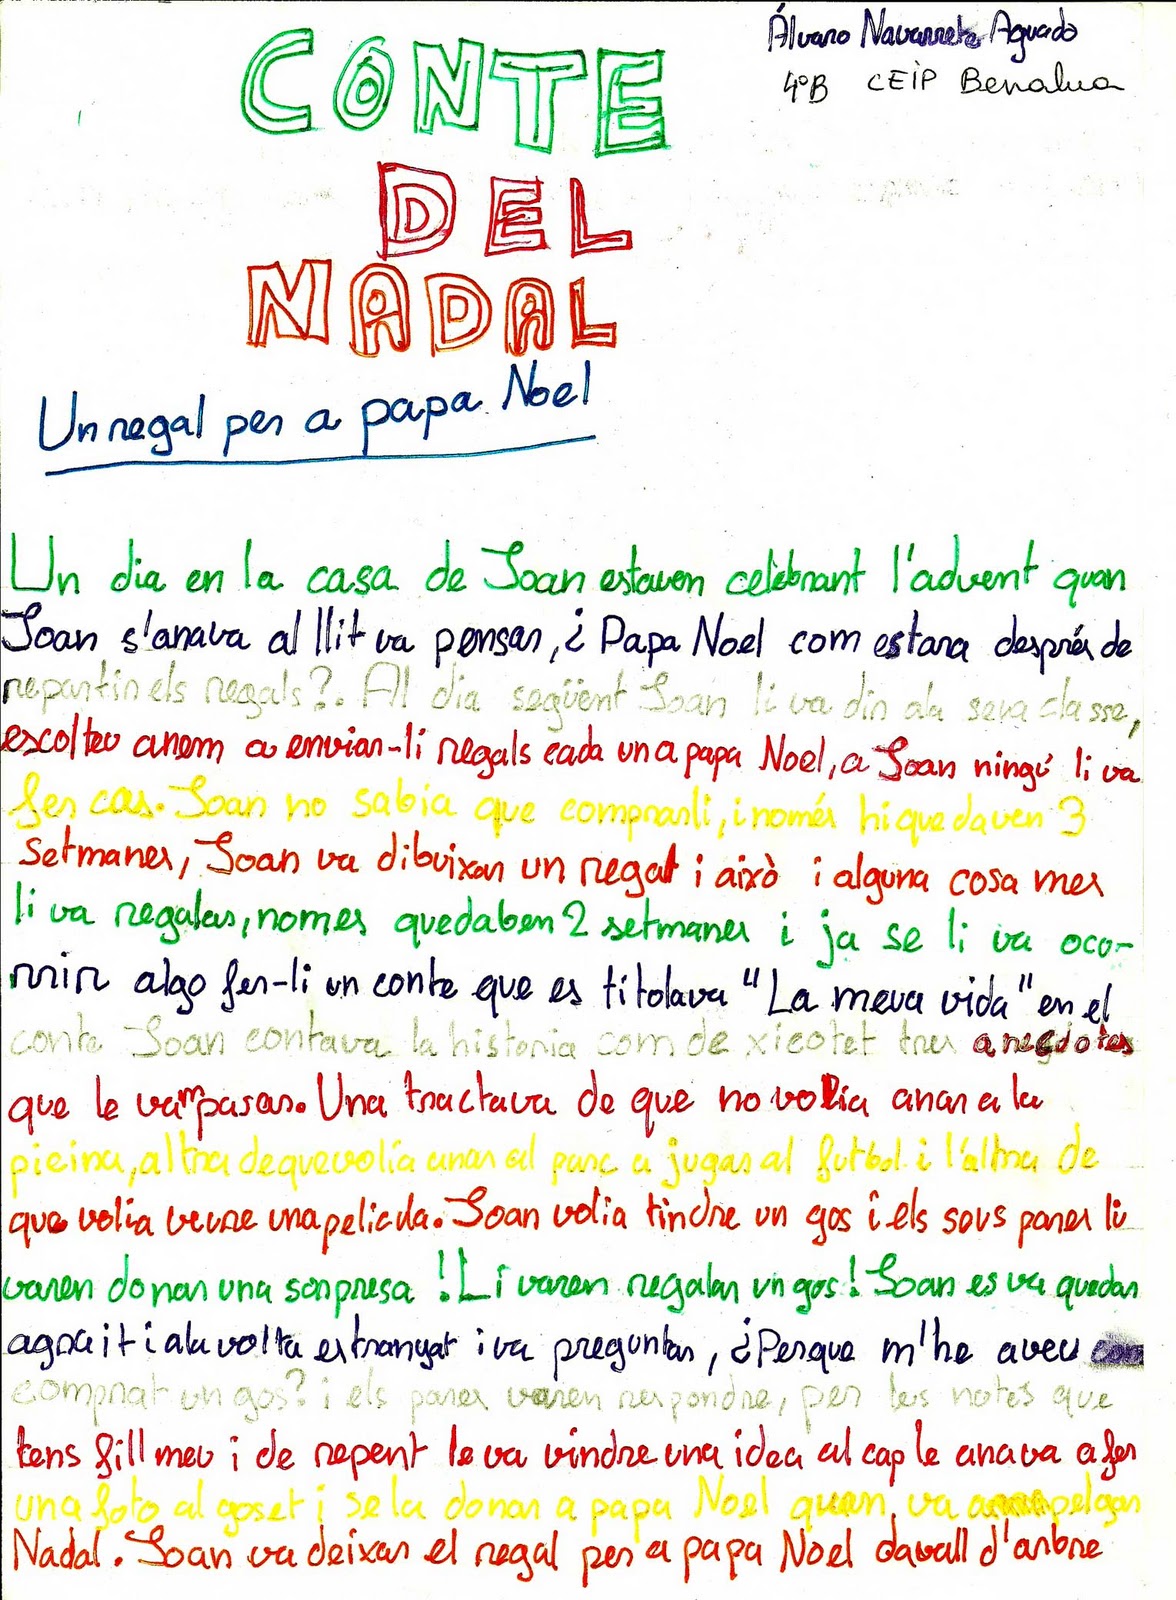 Álvaro Navarrete Aguado
4ºB CEIP Benalua
CONTE
DEL
NADAL
Un regal per a papa Noel
Un dia en la casa de Joan estaven celebrant l'advent quan
Joan s'anava al llit va pensar, ¿Papa Noel com estara després de
repartir els regals?. Al dia següent Joan li va dir a la seva classe,
escolteu anem a enviar-li regals cada un a papa Noel, a Joan ningú li va
fer cas. Joan no sabia que comprarli, i només hi quedaven 3
setmanes, Joan va dibuixar un regal i això i alguna cosa mes
li va regalar, nomes quedaben 2 setmanes i ja se li va oco-
rrir algo fer-li un conte que es titolava "La meva vida" en el
conte Joan contava la historia com de xicotet tres anecdotes
que le vam pasar. Una tractava de que no volia anar a la
piscina, altra de que volia anar al parc a jugar al futbol i l'altra de
que volia veure una pelicula. Joan volia tindre un gos i els seus pares li
varen donar una sorpresa ! Li varen regalar un gos! Joan es va quedar
agrait i a la volta estranyat i va preguntar, ¿Perque m'he aveu
comprat un gos? i els pares varen respondre, per les notes que
tens fill meu i de repent le va vindre una idea al cap le anava a fer
una foto al goset i se la donar a papa Noel quan va
Nadal. Joan va deixar el regal per a papa Noel davall d'arbre